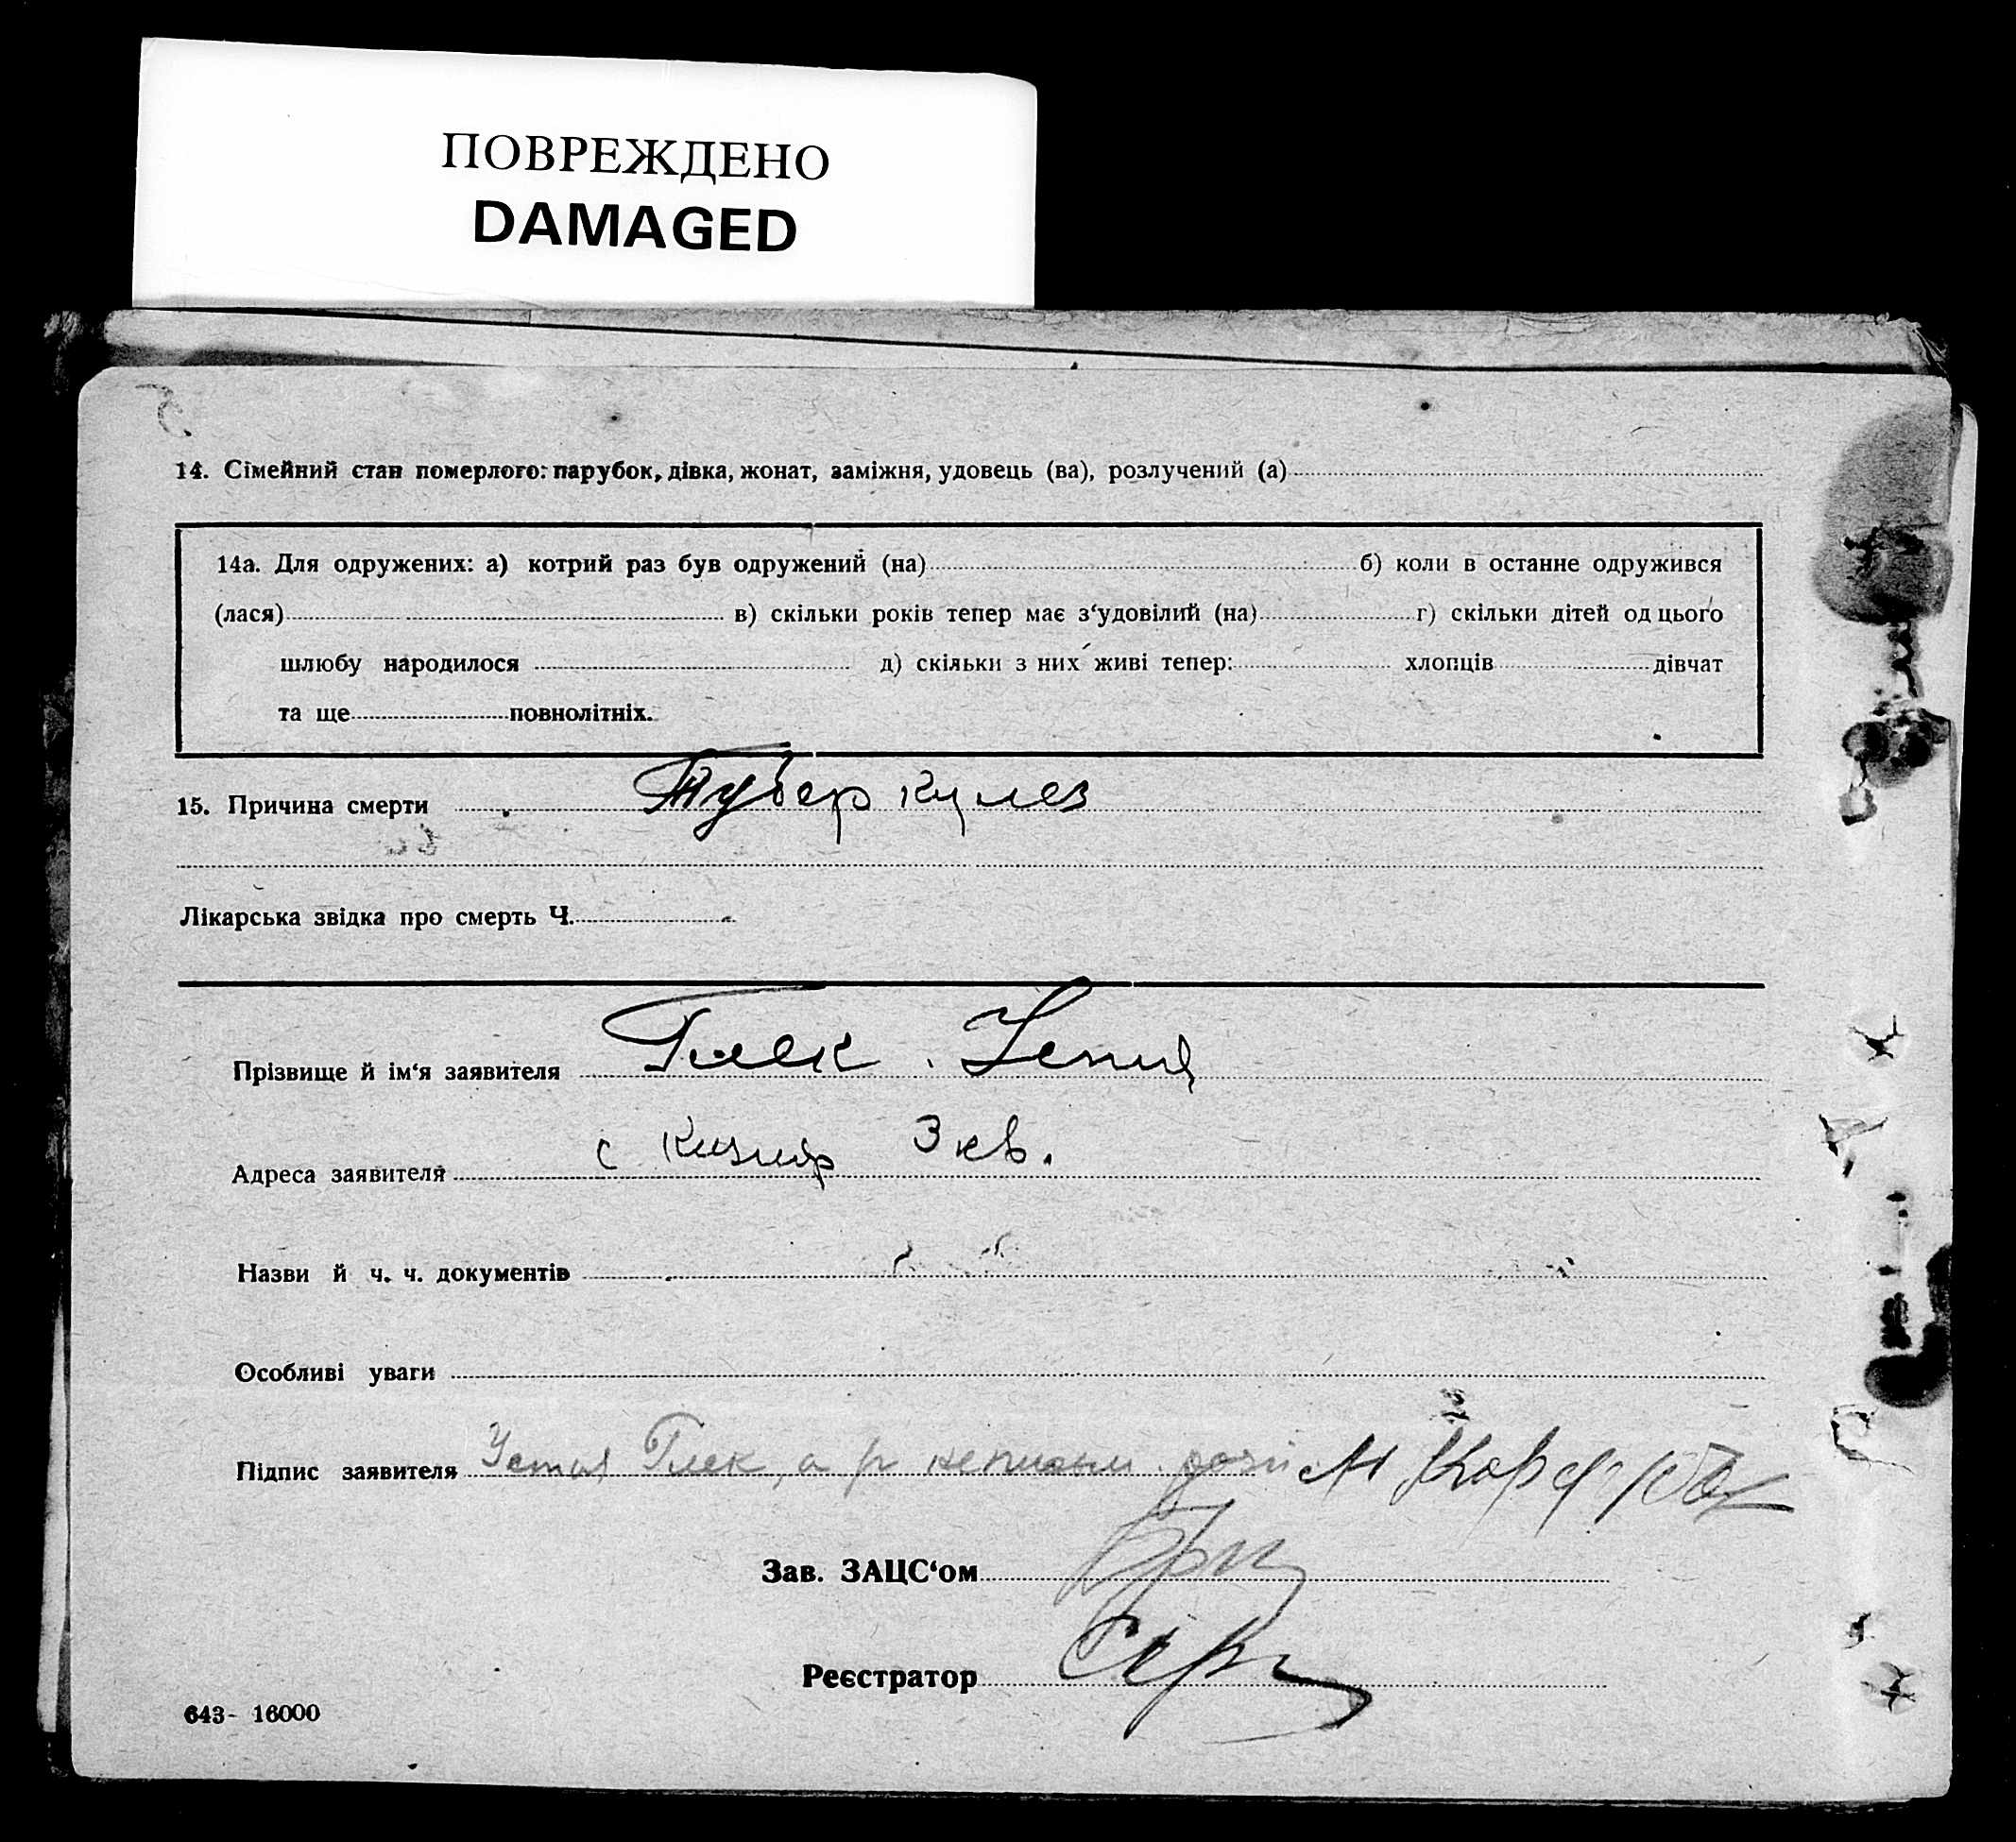 ПОВРЕЖДЕНО
DAMAGED
14. Сімейний стан померлого: парубок, дівка, жонат, заміжня, удовець (ва), розлучений (а)
14а. Для одружених: а) котрий раз був одружений (на) б) коли в останне одружився
(лася) в) скільки років тепер має з‘удовілий (на) г) скільки дітей од цього
шлюбу народилося д) скільки з них живі тепер: хлопців дівчат
та ще повнолітніх.
15. Причина смерти Туберкулез
Лікарська звідка про смерть Ч.
Прізвище й ім‘я заявителя Глек
Адреса заявителя с Кизияр 3 кв.
Назви й ч. ч. документів
Особливі уваги
Підпис заявителя Устия Глек, а
Зав. ЗАЦС‘ом
Реєстратор
643- 16000